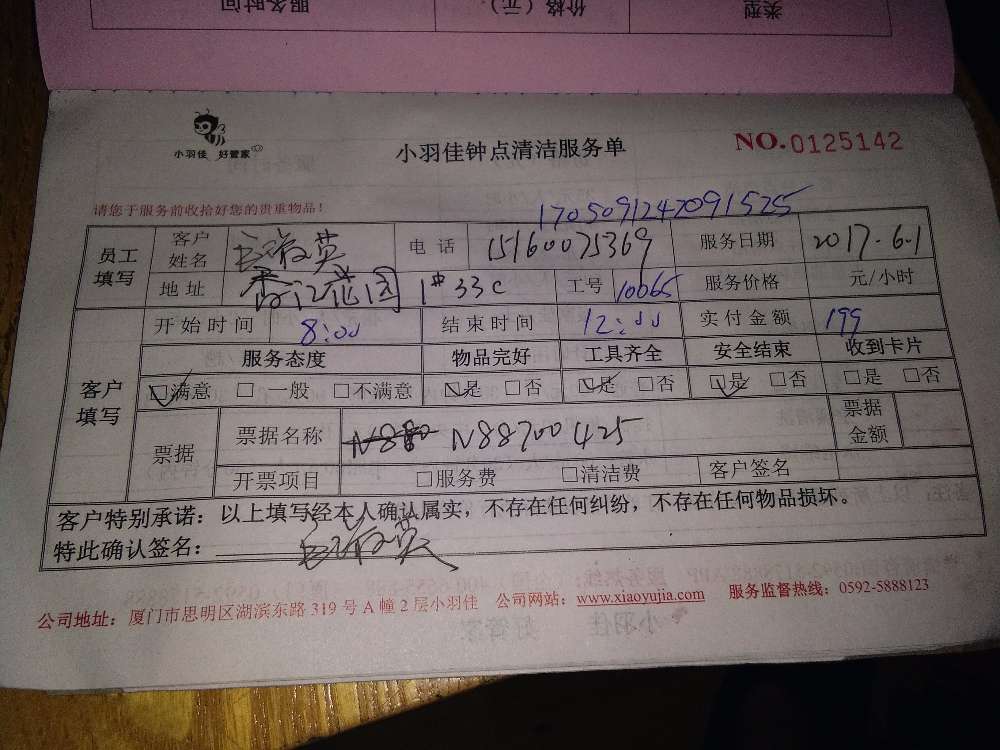 类型 价格(元) 服务时间
小羽佳 好管家
小羽佳钟点清洁服务单
NO.0125142
请您于服务前收拾好您的贵重物品!
1705091247091525
员工填写 客户姓名 电话 15160075369 服务日期 2017.6.1
地址 香江花园 1#33C 工号 10065 服务价格 元/小时
客户填写 开始时间 8:00 结束时间 12:00 实付金额 199
服务态度 物品完好 工具齐全 安全结束 收到卡片
☑满意 □一般 □不满意 ☑是 □否 ☑是 □否 ☑是 □否 □是 □否
票据 票据名称 N88700425 票据金额
开票项目 □服务费 □清洁费 客户签名
客户特别承诺:以上填写经本人确认属实,不存在任何纠纷,不存在任何物品损坏。
特此确认签名:
公司地址:厦门市思明区湖滨东路 319 号 A 幢 2 层小羽佳 公司网站:www.xiaoyujia.com 服务监督热线:0592-5888123